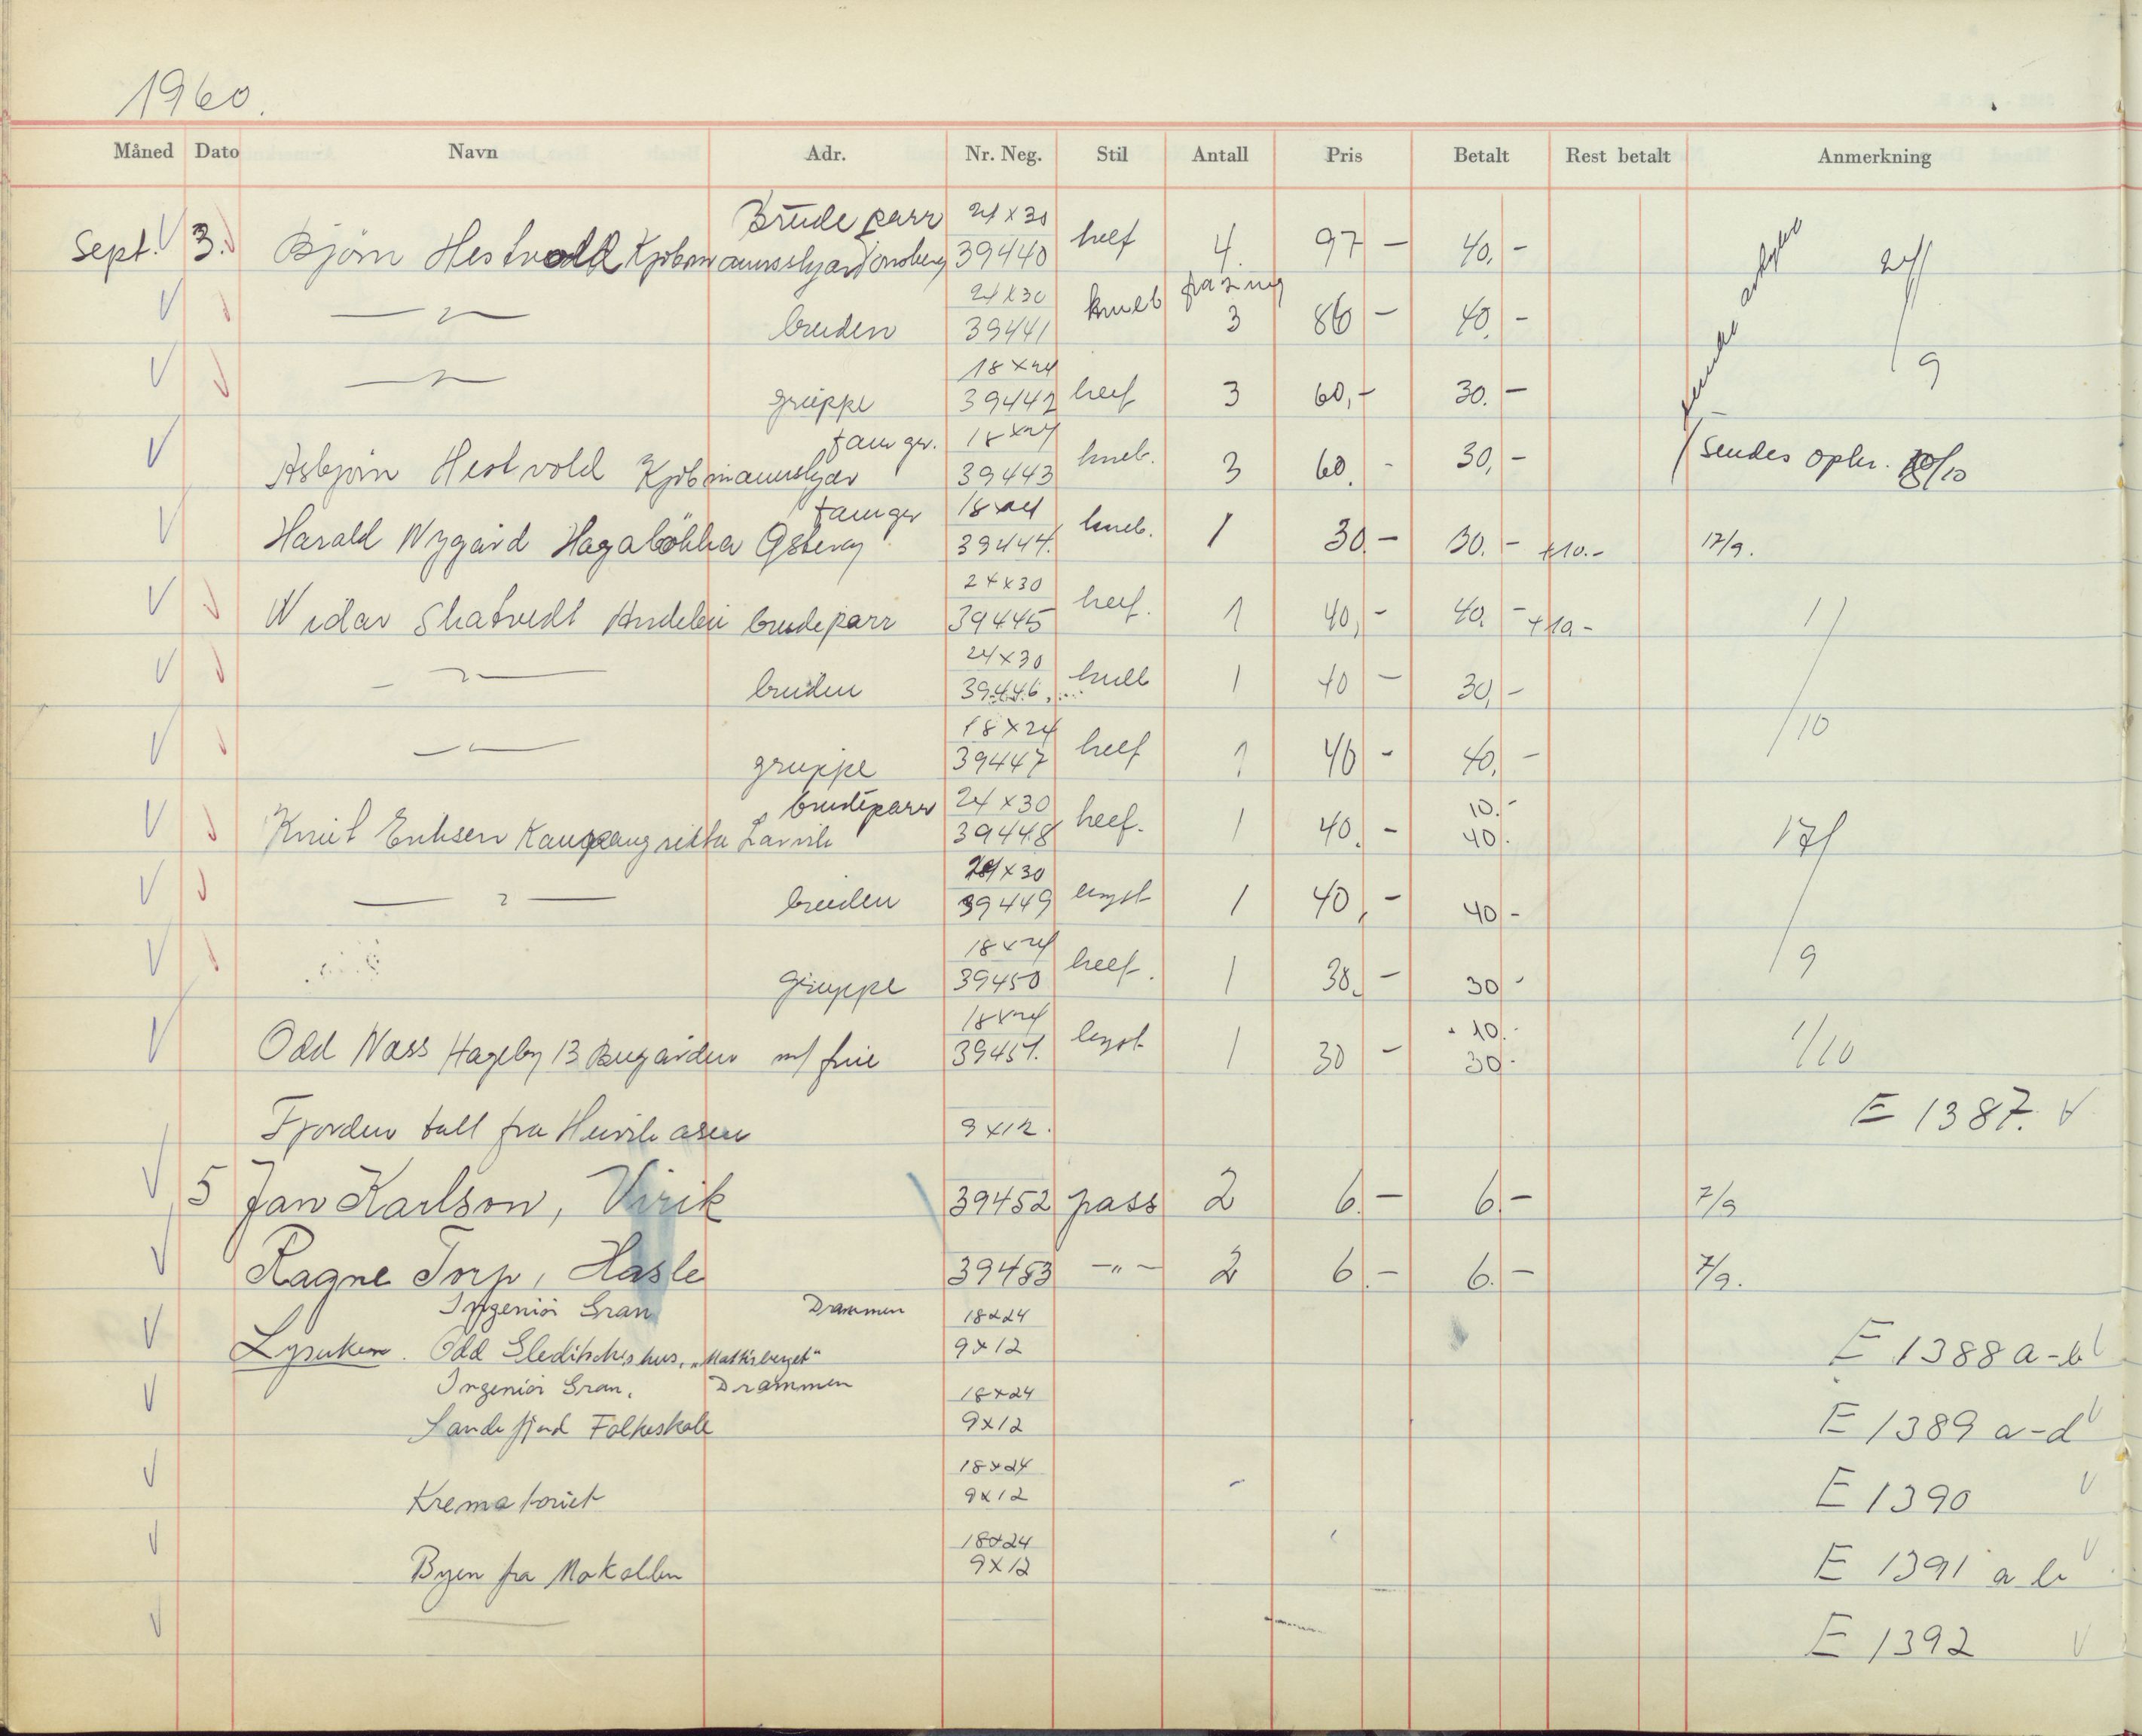 1960.
Måned Dato Navn Adr. Nr. Neg. Stil Antall Pris Betalt Rest betalt Anmerkning
Brudeparr 24x30
Sept. 3. Bjørn Hestvold 39440 helf 4. 97 - 40,-
24x30
bruden 39441 kneb 3 86 - 40,-
18x24
gruppe 39442 helf 3 60,- 30.- 9
fam gr. 18x24
Asbjørn Hestvold 39443 kneb. 3 60.- 30,- Sendes opkr.
fam gr 18x24
Harald Nygård 39444. kneb. 1 30.- 30.- +10.- 17/9.
24x30
Widar Skatvedt Andebu brudeparr 39445 helf. 1 40,- 40.- +10-
24x30
bruden 39446 kneb 1 40 - 30,-
18x24
gruppe 39447 helf 1 40 - 40,- 10
brudeparr 24x30 10.-
Knut Eriksen Larvik 39448 helf. 1 40.- 40.
24x30
bruden 39449 1 40,- 40-
18x24
gruppe 39450 helf. 1 30,- 30- 9
18x24 10.-
Odd Nass Hageby 13 Bugården m/ frue 39451. 1 30 - 30- 1/10
Fjorden tatt fra 9x12. E 1387.
5 Jan Karlson, Virik 39452 pass 2 6.- 6.- 7/9
Ragne Torp, Hasle 39453 -"- 2 6.- 6.- 7/9.
Ingeniør Gran Drammen 18x24
Odd Gleditschs hus, 9x12 E 1388 a-b
Ingeniør Gran, Drammen 18x24
Sandefjord Folkeskole 9x12 E 1389 a-d
18x24
Krematoriet 9x12 E 1390
18x24
Byen fra Mokollen 9x12 E 1391 a b
E 1392